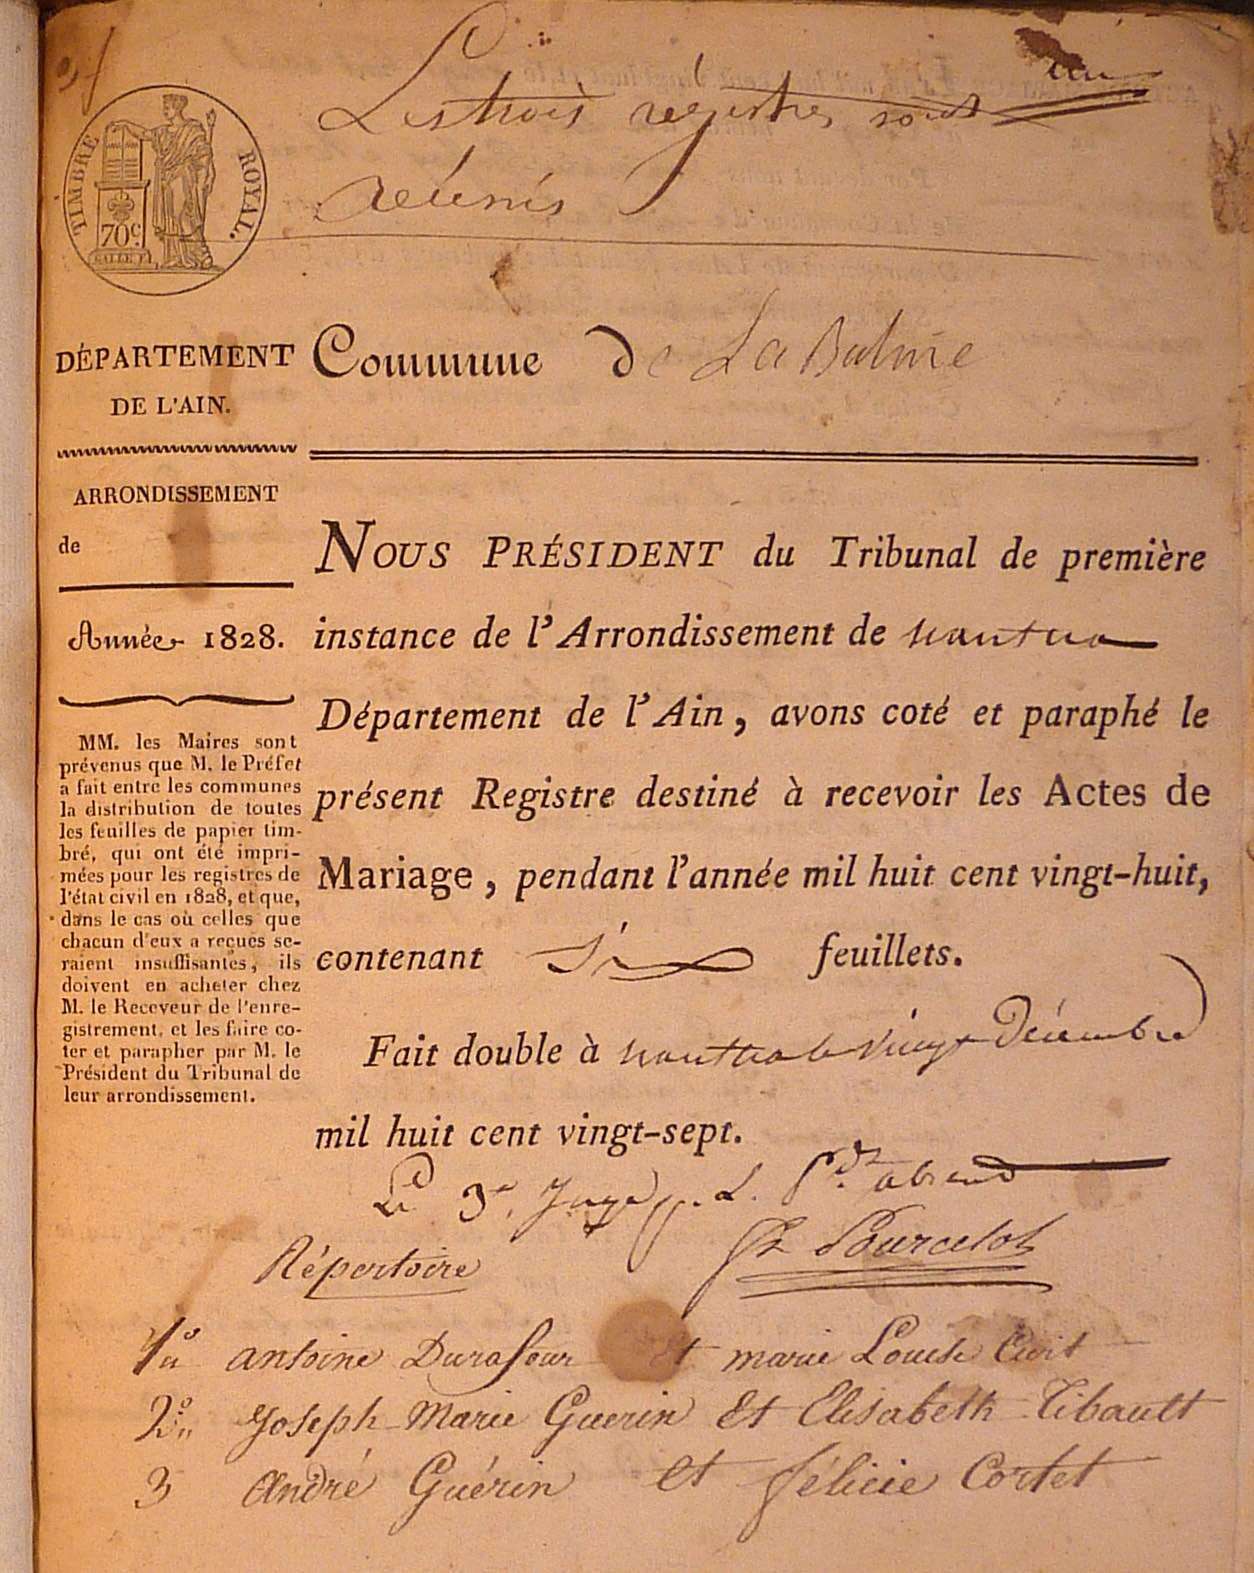 Les trois registres sont
réunis
TIMBRE ROYAL.
70 c.
DÉPARTEMENT
DE L'AIN.
Commune de La Balme
ARRONDISSEMENT
de
Année 1828.
MM. les Maires sont
prévenus que M. le Préfet
a fait entre les communes
la distribution de toutes
les feuilles de papier tim-
bré, qui ont été impri-
mées pour les registres de
l'état civil en 1828, et que,
dans le cas où celles que
chacun d'eux a reçues se-
raient insuffisantes, ils
doivent en acheter chez
M. le Receveur de l'enre-
gistrement, et les faire co-
ter et parapher par M. le
Président du Tribunal de
leur arrondissement.
NOUS PRÉSIDENT du Tribunal de première
instance de l'Arrondissement de nantua
Département de l'Ain, avons coté et paraphé le
présent Registre destiné à recevoir les Actes de
Mariage, pendant l'année mil huit cent vingt-huit,
contenant Six feuillets.
Fait double à nantua le vingt Décembre
mil huit cent vingt-sept.
Le 3e Juge p. L. Pdt absent
Pourcelot
Répertoire
1o antoine Durafour et marie Louise
2o Joseph Marie Guerin Et Elisabeth Tibault
3 André Guérin et félicie Cortet